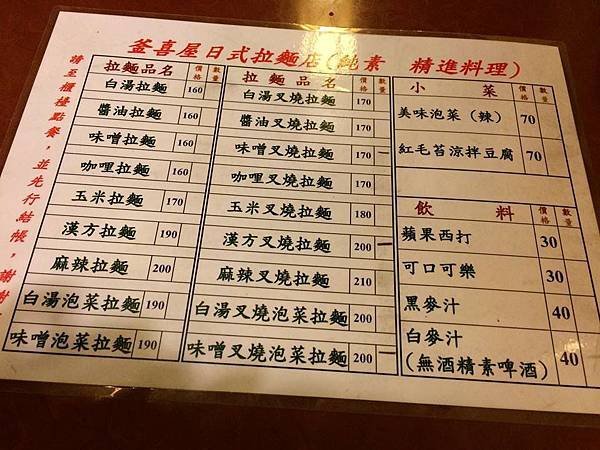 釜喜屋日式拉麵店(純素 精進料理)
請至櫃檯點餐，並先行結帳，謝謝
拉麵品名 價格 數量
白湯拉麵 160
醬油拉麵 160
味噌拉麵 160
咖哩拉麵 160
玉米拉麵 170
漢方拉麵 190
麻辣拉麵 200
白湯泡菜拉麵 190
味噌泡菜拉麵 190
拉麵品名 價格 數量
白湯叉燒拉麵 170
醬油叉燒拉麵 170
味噌叉燒拉麵 170
咖哩叉燒拉麵 170
玉米叉燒拉麵 180
漢方叉燒拉麵 200
麻辣叉燒拉麵 210
白湯叉燒泡菜拉麵 200
味噌叉燒泡菜拉麵 200
小菜 價格 數量
美味泡菜（辣） 70
紅毛苔涼拌豆腐 70
飲料 價格 數量
蘋果西打 30
可口可樂 30
黑麥汁 40
白麥汁
(無酒精素啤酒) 40